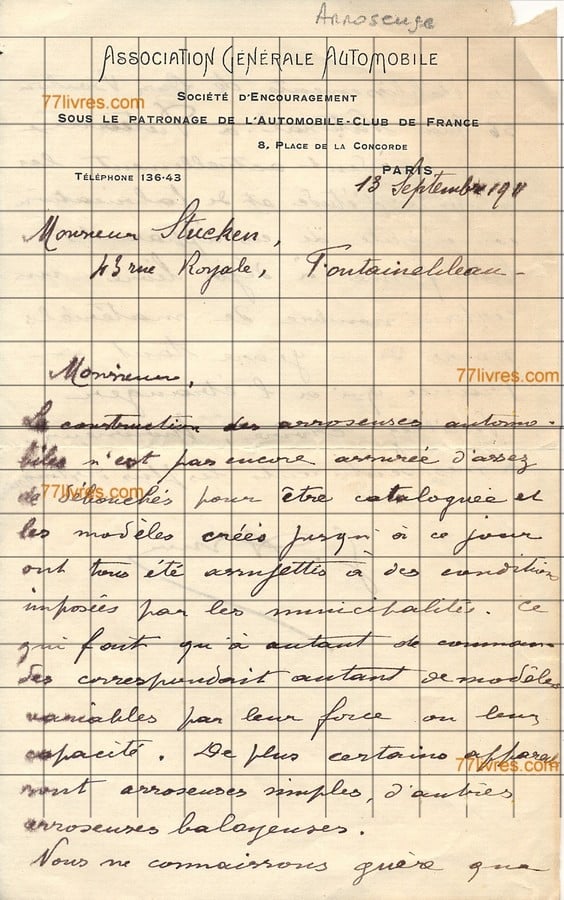 Arroseuse
ASSOCIATION GÉNÉRALE AUTOMOBILE
77livres.com
SOCIÉTÉ D'ENCOURAGEMENT
SOUS LE PATRONAGE DE L'AUTOMOBILE-CLUB DE FRANCE
8, PLACE DE LA CONCORDE
TÉLÉPHONE 136-43
PARIS,
13 Septembre 1911
Monsieur Stucken,
43 rue Royale, Fontainebleau -
77livres.com
Monsieur,
La construction des arroseuses automo-
biles n'est pas encore assurée d'assez
77livres.com
de débouchés pour être cataloguée et
les modèles créés jusqu'à ce jour
ont tous été assujettis à des condition
imposées par les municipalités. Ce
qui fait qu'à autant de comman-
des correspondait autant de modèles
variables par leur force ou leur
capacité. De plus certains appareils
77livres.com
sont arroseuses simples, d'autres
arroseuses balayeuses.
Nous ne connaissons guère que